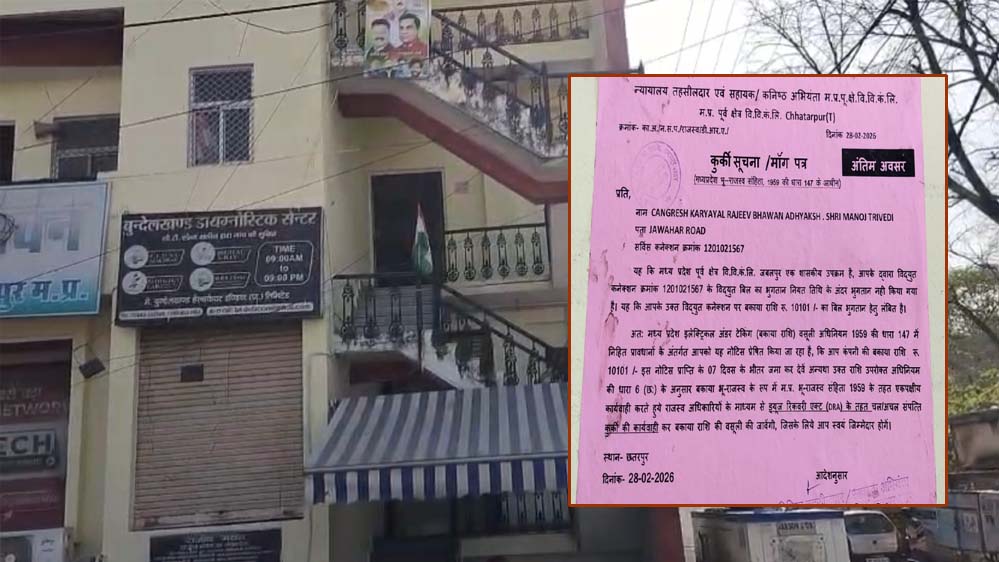 बुन्देलखण्ड डायग्नोस्टिक सेन्टर
TIME
09:00AM
to
09:00 PM
पुर म.प्र.
NETWORK
TECH
न्यायालय तहसीलदार एवं सहायक/ कनिष्ठ अभियंता म.प्र.पू.क्षे.वि.वि.कं.लि.
म.प्र. पूर्व क्षेत्र वि.वि.कं.लि. Chhatarpur(T)
क्रमांक- का.अ/नि.स.प./राजस्व/डी.आर.ए./ दिनांक 28-02-2026
कुर्की सूचना /माँग पत्र अंतिम अवसर
(मध्यप्रदेश भू-राजस्व संहिता, 1959 की धारा 147 के आधीन)
प्रति,
नाम CANGRESH KARYAYAL RAJEEV BHAWAN ADHYAKSH . SHRI MANOJ TRIVEDI
पता JAWAHAR ROAD
सर्विस कनेक्शन क्रमांक 1201021567
यह कि मध्य प्रदेश पूर्व क्षेत्र वि.वि.कं.लि. जबलपुर एक शासकीय उपक्रम है, आपके द्वारा विद्युत
कनेक्शन क्रमांक 1201021567 के विद्युत बिल का भुगतान नियत तिथि के अंदर भुगतान नही किया गया
है। यह कि आपके उक्त विद्युत कनेक्शन पर बकाया राशि रू. 10101 /- का बिल भुगतान हेतु लंबित है।
अतः मध्य प्रदेश इलेक्ट्रिकल अंडर टेकिंग (बकाया राशि) वसूली अधिनियम 1959 की धारा 147 में
निहित प्रावधानों के अंतर्गत आपको यह नोटिस प्रेषित किया जा रहा है, कि आप कंपनी की बकाया राशि रू.
10101 /- इस नोटिस प्राप्ति के 07 दिवस के भीतर जमा कर देवें अन्यथा उक्त राशि उपरोक्त अधिनियम
की धारा 6 (छः) के अनुसार बकाया भू-राजस्व के रुप में म.प्र. भू-राजस्व संहिता 1959 के तहत एकपक्षीय
कार्यवाही करते हुये राजस्व अधिकारियों के माध्यम से ड्यूज रिकवरी एक्ट (DRA) के तहत चल/अचल संपत्ति
कुर्की की कार्यवाही कर बकाया राशि की वसूली की जावेंगी, जिसके लिये आप स्वयं जिम्मेदार होगें।
स्थान- छतरपुर
दिनांक- 28-02-2026 आदेशनुसार